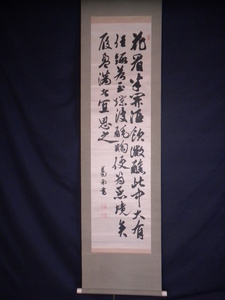 花看半開酒飲微醉此中大有
佳趣若至爛漫酕醄便為惡境矣
履盈滿者宜思之